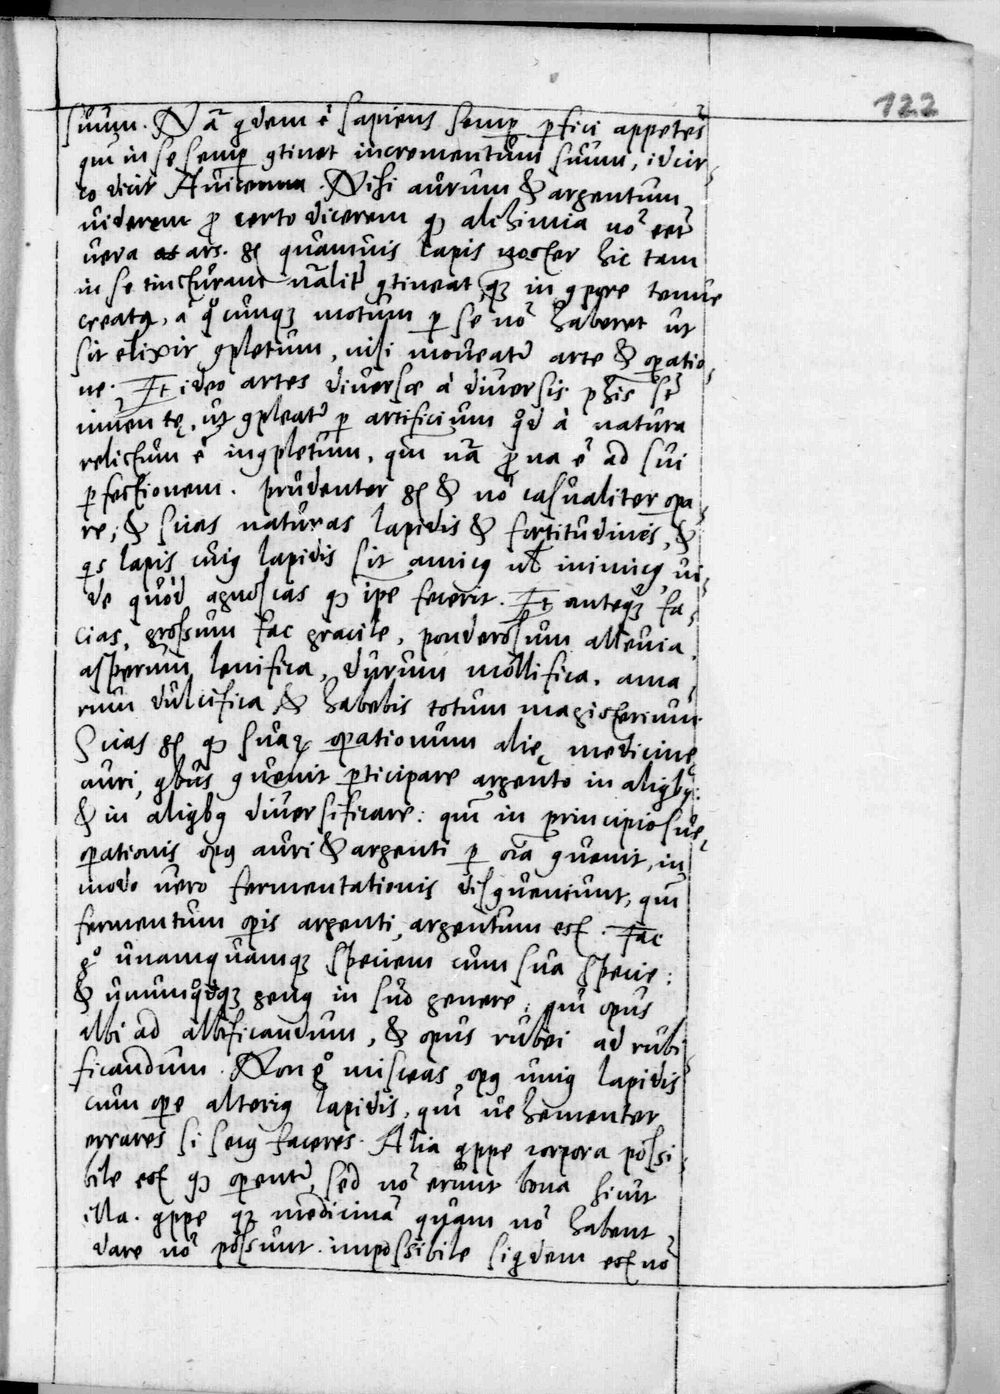 122
suum. Nā qdem ē sapiens semp pfici appetēs
qm in se semp gtinet incrementum suum, idcir-
co dicit Auicenna. Nisi aurum & argentum
uiderem p certo dicerem qz alchimia nō eēt
uera ars. g quamuis lapis noster hic tam
in se tincturam nālitr gtineat, qz in gpore tenue
creatq, a qocunqz motum p se nō haberet ut
sit elixir gpletum, nisi moueatr arte & opatio-
ne. Et ideo artes diuersæ à diuersis phis st
inuentę, ut gpleatr p artificium qd à natura
relictum ē ingpletum, qm nā prona ē ad sui
pfectionem. prudenter g & nō casualiter opa-
re, & scias naturas lapidis & fortitudines, &
qs lapis cuig lapidis sit amicq ul inimicq, ui-
de quod agnoscas qz ipe fecerit. Et anteqz fa-
cias, grossum fac gracile, ponderosum alleuia,
asperum lenifica, durum mollifica, ama-
rum dulcifica, & habebis totum magisterium
Scias g qz suarz opationum alię medicinę
auri, qbus guenit pticipare argento in aliqbq:
& in aliqbq diuersificare: qm in principio suę
opationis opq auri & argenti p oīa guenit, in
modo uero fermentationis disgueniunt, qm
fermentum opis argenti, argentum est. Fac
go unamquamqz speciem cum sua specie:
& unumqdqz genq in suo genere: qm opus
albi ad albificandum, & opus rubei ad rubi-
ficandum. Non go misceas opq uniq lapidis
cum ope alteriq lapidis, qm uehementer
errares si secq faceres. Alia qppe corpora possi-
bile est qz opentr, sed nō erunt bona sicut
illa. qppe qz medicinā quam nō habent,
dare nō possunt. impossibile siqdem est nō